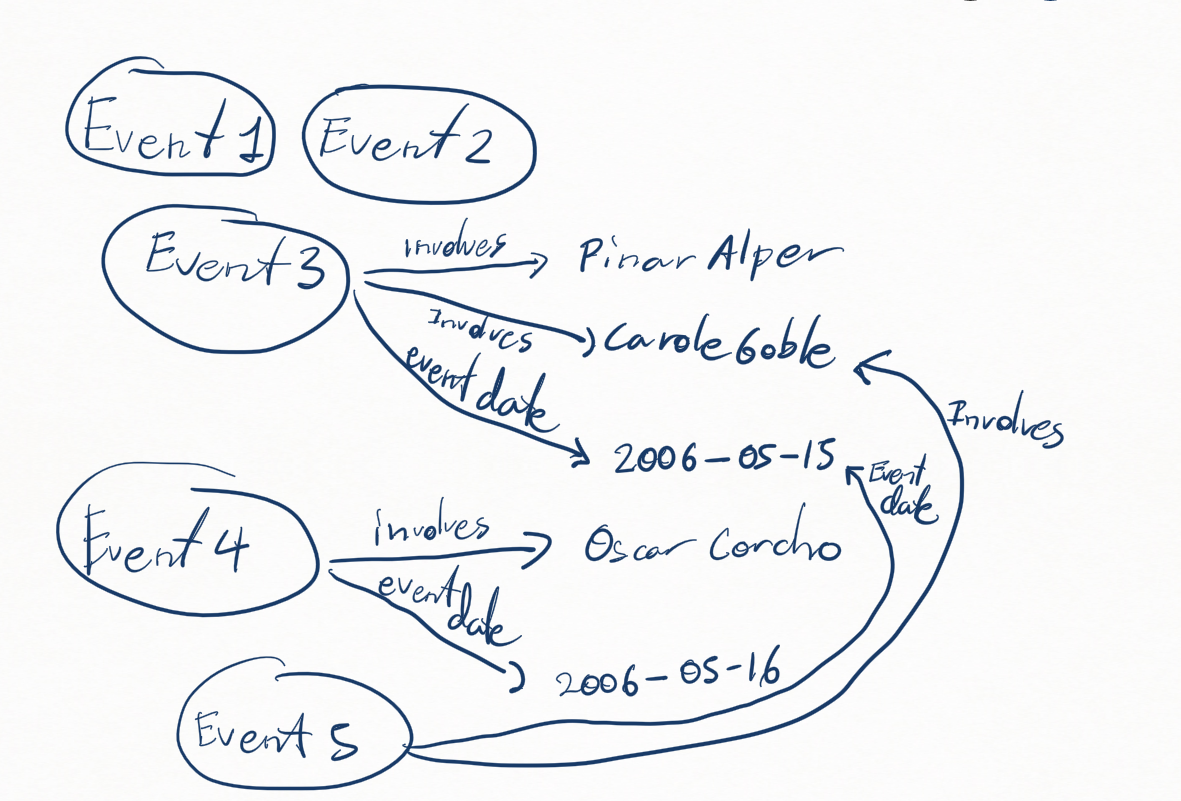 Event 1
Event 2
Event 3
involves
Pinar Alper
Involves
Carole Goble
event date
Involves
2006-05-15
Event
date
Event 4
involves
Oscar Corcho
event
date
2006-05-16
Event 5